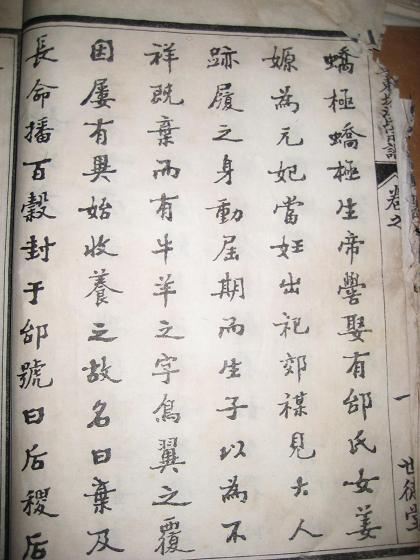 譜 卷之 一
蟜極蟜極生帝嚳娶有邰氏女姜
嫄為元妃當妊出祀郊禖見大人
跡履之身動屆期而生子以為不
祥既棄而有牛羊之字鳥翼之覆
因屢有異始收養之故名曰棄及
長命播百穀封于邰號曰后稷后